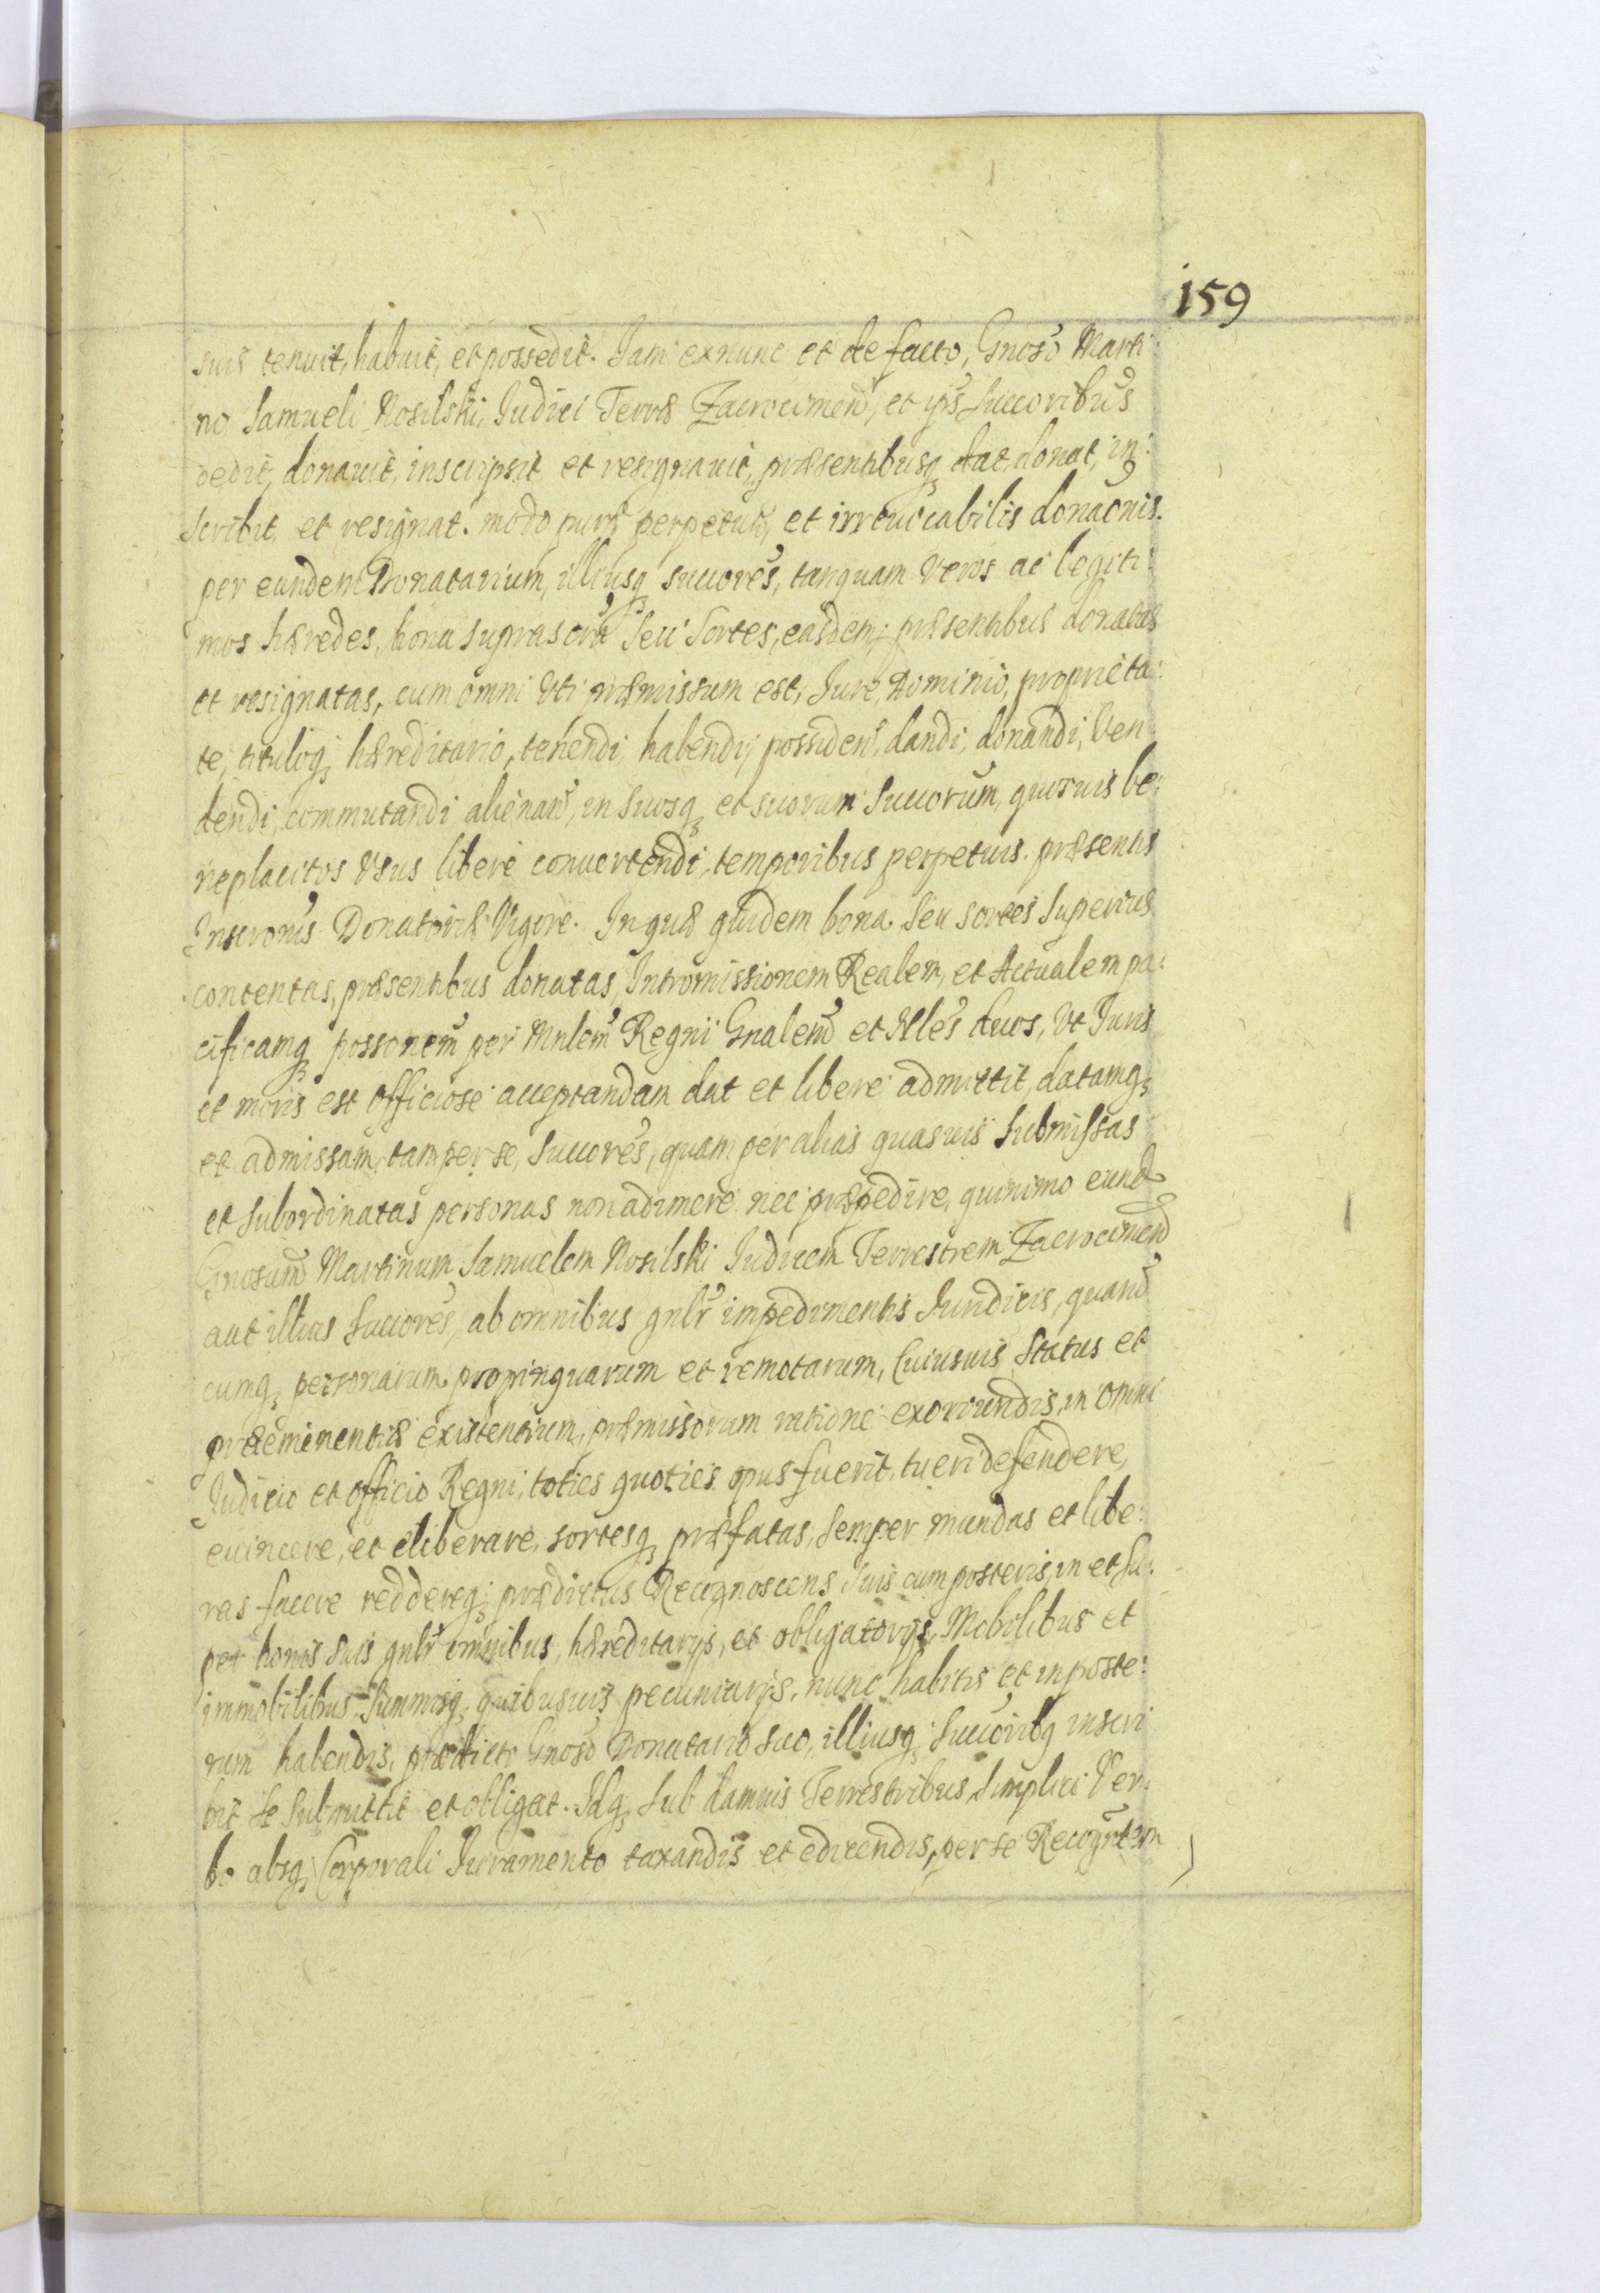 159
suis tenuit, habuit, et possedit. Iam exnunc et de facto, Gnoso Marti:
no Samueli Nosilski, Iudici Terræ Zacrocimen, et ips Succoribus
dedit, donauit, inscripsit et resignauit, præsentibusq dat, donat, in:
scribit et resignat. modo puræ perpetuæ, et irreuocabilis donaonis.
per eundem Donatarium, illiusq succores, tanquam veros ac legiti:
mos hæredes, bona suprascrta seu Sortes, easdem præsentibus donatas
et resignatas, cum omni vti præmissum est, Iure, Dominio, proprieta:
te, tituloq hæreditario, tenendi, habendi, possiden, dandi, donandi, Ven:
dendi, commutandi alienan, in suosq et suorum Succorum, quosuis be:
neplacitos vsus libere conuertendi, temporibus perpetuis. præsentis
Inscronis Donatoriæ Vigore. In quæ quidem bona seu sortes superius
contentas, præsentibus donatas, Intromissionem Realem, et Actualem pa:
cificamq possonem per Mnlem Regni Gnalem et Nles duos, vt Iuris
et moris est officiose acceptandam dat et libere admittit, datamq
et admissam, tam per se, Succores, quam per alias quasuis submissas
et subordinatas personas non adimere nec præpedire, quinimo eund
Gnosum Martinum Samuelem Nosilski Iudicem Terrestrem Zacrocimen
aut illius succores, ab omnibus gnlr impedimentis Iuridicis, quarun
cumq personarum propinquarum et remotarum, Cuiusuis Status et
præeminentiæ existentium, præmissorum ratione exoriundis, in omni
Iudicio et officio Regni, toties quoties opus fuerit, tueri defendere,
euincere, et eliberare, sortesq præfatas, semper mundas et libe:
ras facere reddereq prædictus Recognoscens suis cum posteris, in et su:
per bonis suis gnlr omnibus, hæreditarijs, et obligatorijs, Mobilibus et
immobilibus Summisq quibusuis pecuniarijs, nunc habitis et in poste:
rum habendis, prædicto Gnoso Donatario suo, illiusq Succoribq inscri
bit se submittit et obligat. Idq sub damnis Terrestribus simplici Ver:
bo absq Corporali Iuramento taxandis et edicendis, per se Recogntem